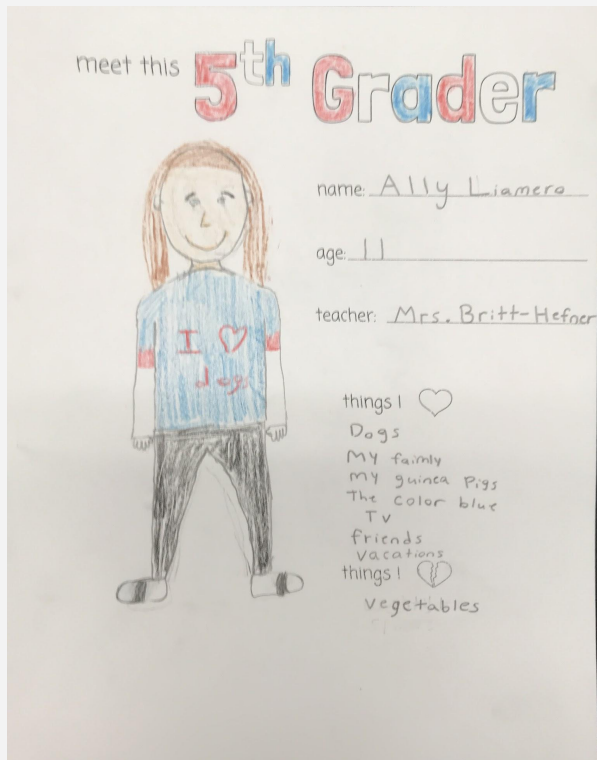 meet this 5th Grader
name: Ally Liamero
age: 11
teacher: Mrs. Britt-Hefner
I ♡
dogs
things I ♡
Dogs
My faimly
My guinea Pigs
The color blue
TV
friends
vacations
things I 💔
vegetables